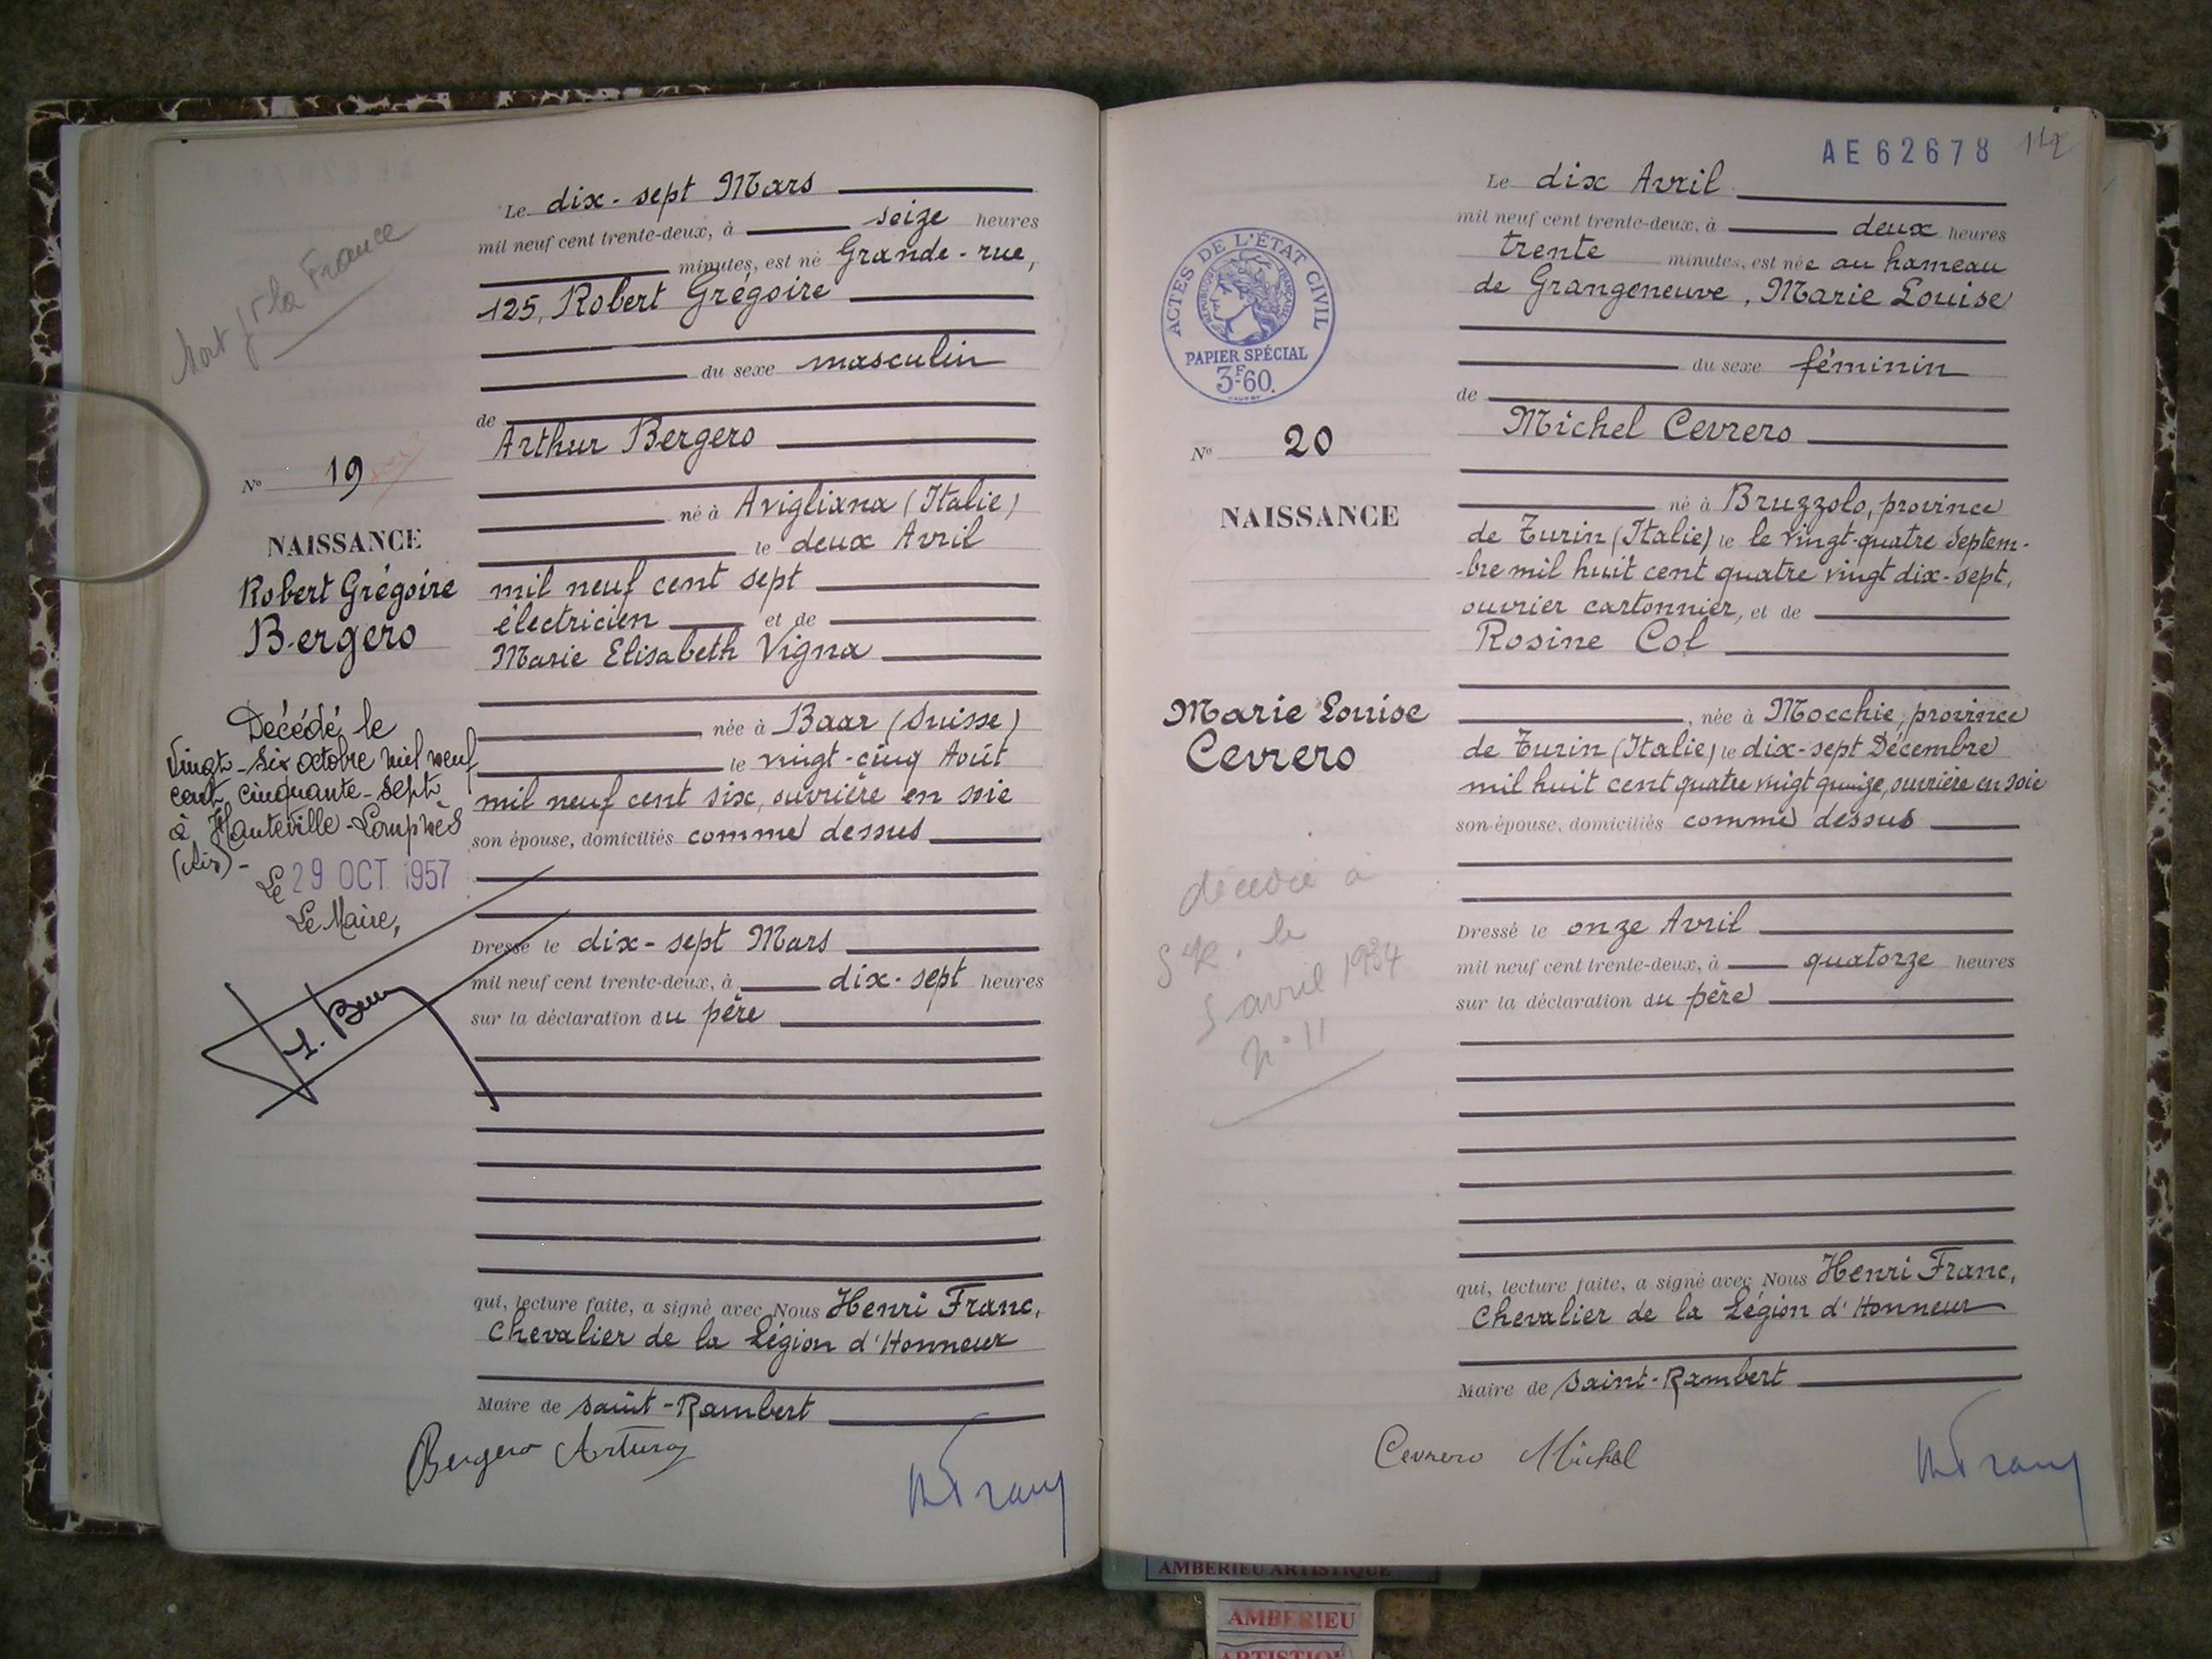 Mort pr la France
Le dix-sept Mars
mil neuf cent trente-deux, à seize heures
minutes, est né Grande-rue,
125, Robert Grégoire
du sexe masculin
de
Arthur Bergero
né à Avigliana (Italie)
le deux Avril
mil neuf cent sept
électricien et de
Marie Elisabeth Vigna
née à Baar (Suisse)
le vingt-cinq Août
mil neuf cent six, ouvrière en soie
son épouse, domiciliés comme dessus
Dressé le dix-sept Mars
mil neuf cent trente-deux, à dix-sept heures
sur la déclaration du père
qui, lecture faite, a signé avec Nous Henri Franc,
Chevalier de la Légion d'Honneur
Maire de Saint-Rambert
Bergero Arturo
HFranc
N° 19
NAISSANCE
Robert Grégoire
Bergero
Décédé le
vingt-six octobre mil neuf
cent cinquante-sept
à Hauteville-Lompnès
(Ain)-
Le 29 OCT. 1957
Le Maire,
AE62678
112
Le dix Avril
mil neuf cent trente-deux, à deux heures
trente minutes, est née au hameau
de Grangeneuve, Marie Louise
du sexe féminin
de
Michel Cevrero
né à Bruzzolo, province
de Turin (Italie) le le vingt-quatre Septem-
-bre mil huit cent quatre vingt dix-sept,
ouvrier cartonnier, et de
Rosine Col
, née à Mocchie, province
de Turin (Italie) le dix-sept Décembre
mil huit cent quatre vingt quinze, ouvrière en soie
son épouse, domiciliés comme dessus
Dressé le onze Avril
mil neuf cent trente-deux, à quatorze heures
sur la déclaration du père
qui, lecture faite, a signé avec Nous Henri Franc,
Chevalier de la Légion d'Honneur
Maire de Saint-Rambert
Cevrero Michel
HFranc
ACTES DE L'ÉTAT CIVIL
RÉPUBLIQUE FRANÇAISE
PAPIER SPÉCIAL
3F60.
N° 20
NAISSANCE
Marie Louise
Cevrero
décédée à
St R. le
5 avril 1934
n° 11
AMBERIEU ARTISTIQUE
AMBERIEU
ARTISTIQ